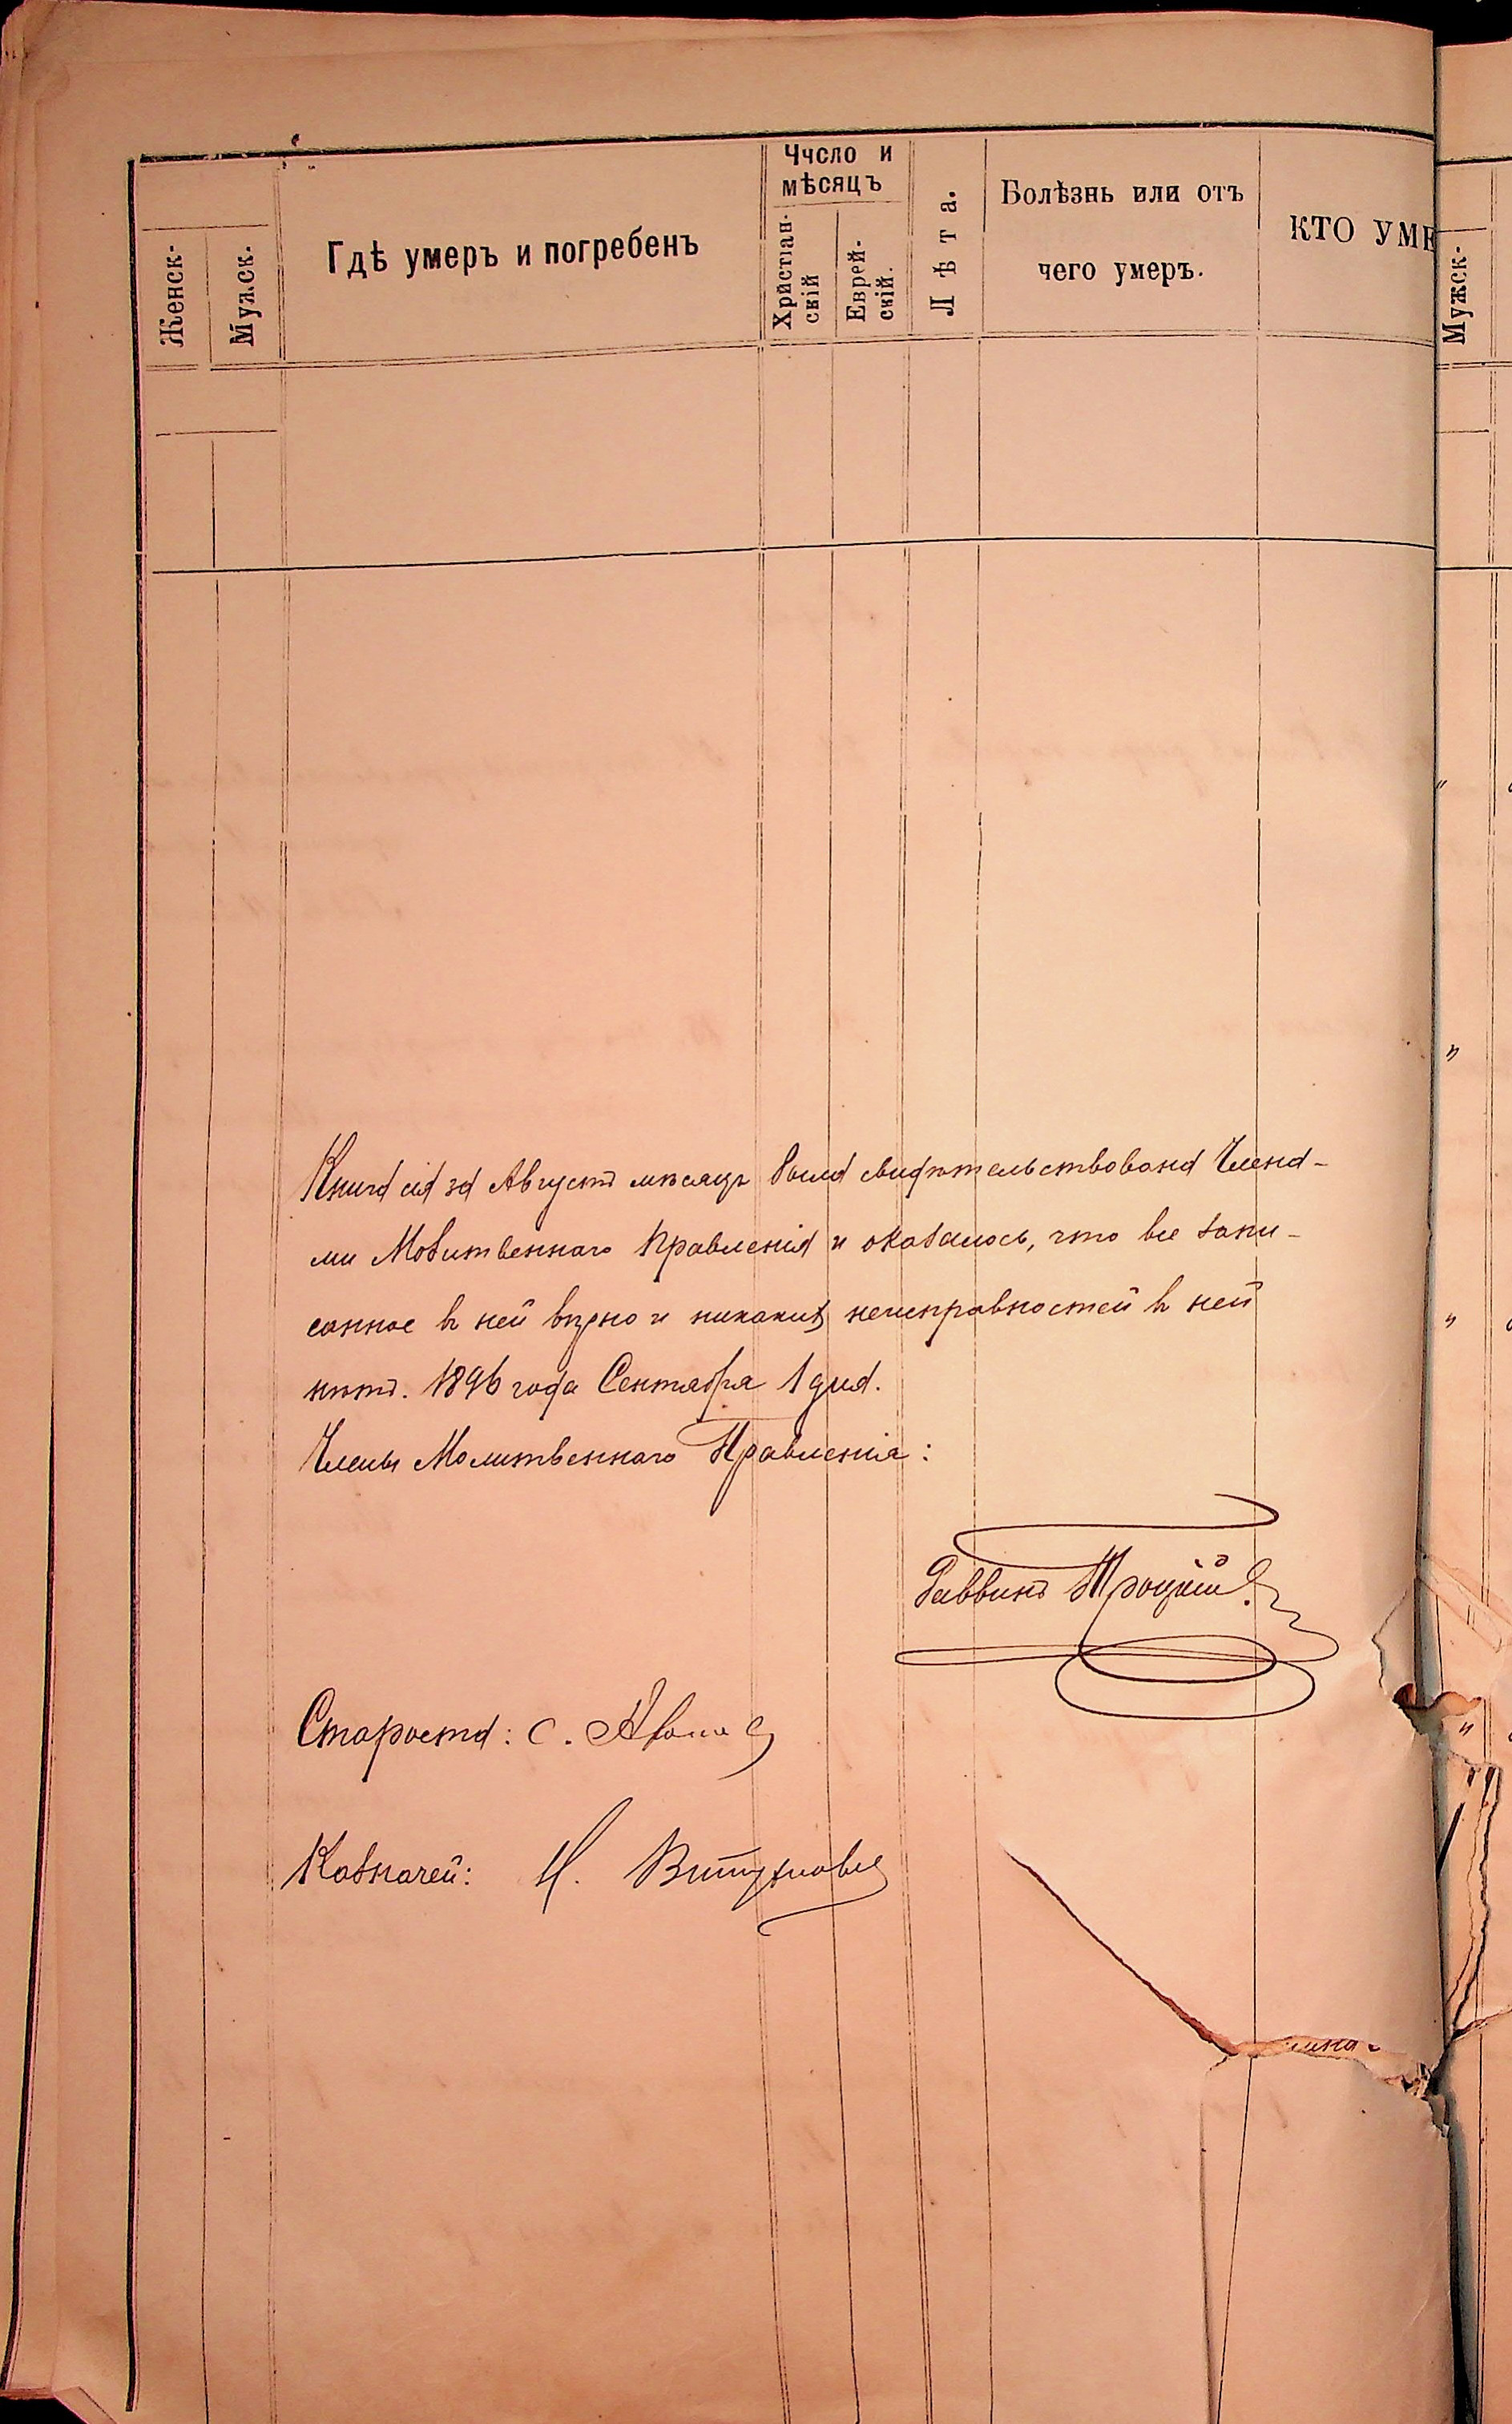 Число и
мѣсяцъ
Женск-
Мужск.
Гдѣ умеръ и погребенъ
Христіан-
скій
Еврей-
скій.
Лѣта.
Болѣзнь или отъ
чего умеръ.
КТО УМЕ
Мужск-
Книга сія за Августъ мѣсяцъ была свидѣтельствована Члена-
ми Молитвеннаго Правленія и оказалось, что все запи-
санное въ ней вѣрно и никакихъ неисправностей въ ней
нѣтъ. 1896 года Сентября 1 дня.
Члены Молитвеннаго Правленія:
Раввинъ Троцкій
Староста: С.
Казначей: И.